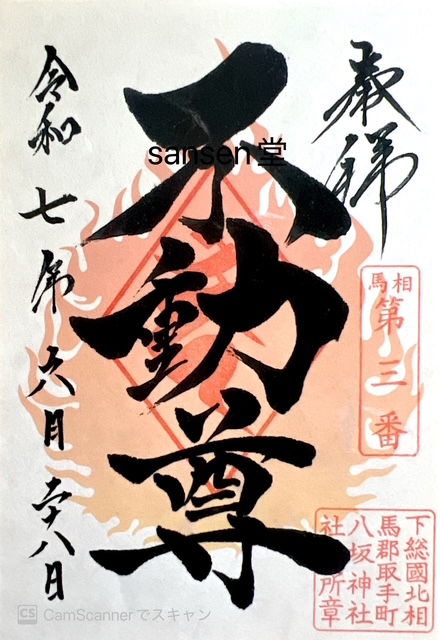 奉拝
相馬
第三番
不動尊
sansen堂
令和七年六月二十八日
下総國北相
馬郡取手町
八坂神社
社務所章
CS CamScannerでスキャン